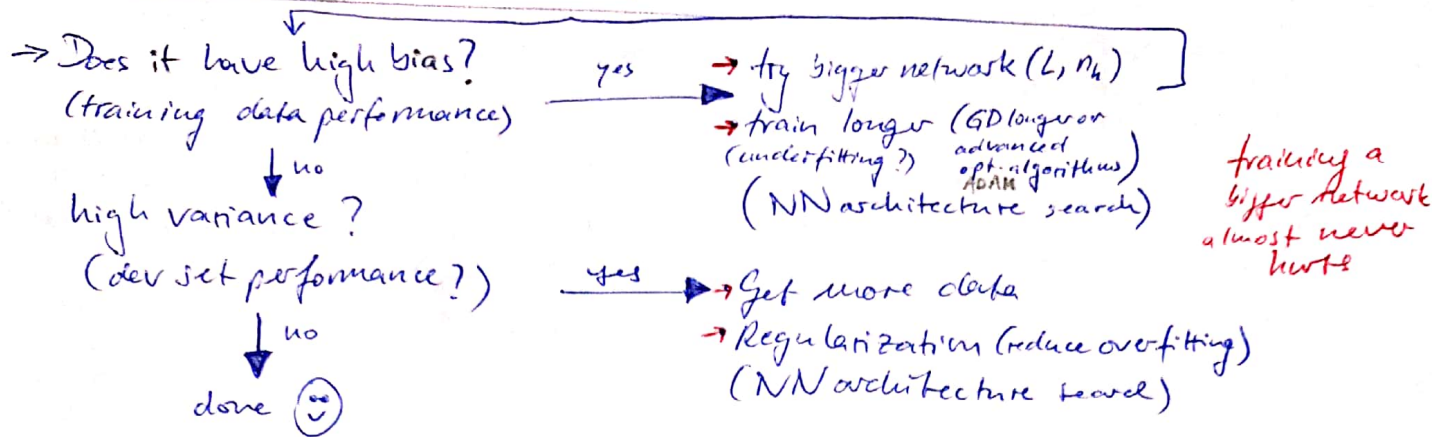 → Does it have high bias?
(training data performance)
yes
→ try bigger network (L, nh)
→ train longer (GD longer or
(underfitting?) advanced
opt. algorithms)
ADAM
(NN architecture search)
training a
bigger network
almost never
hurts
no
high variance?
(dev set performance?)
yes
→ Get more data
→ Regularization (reduce overfitting)
(NN architecture search)
no
done